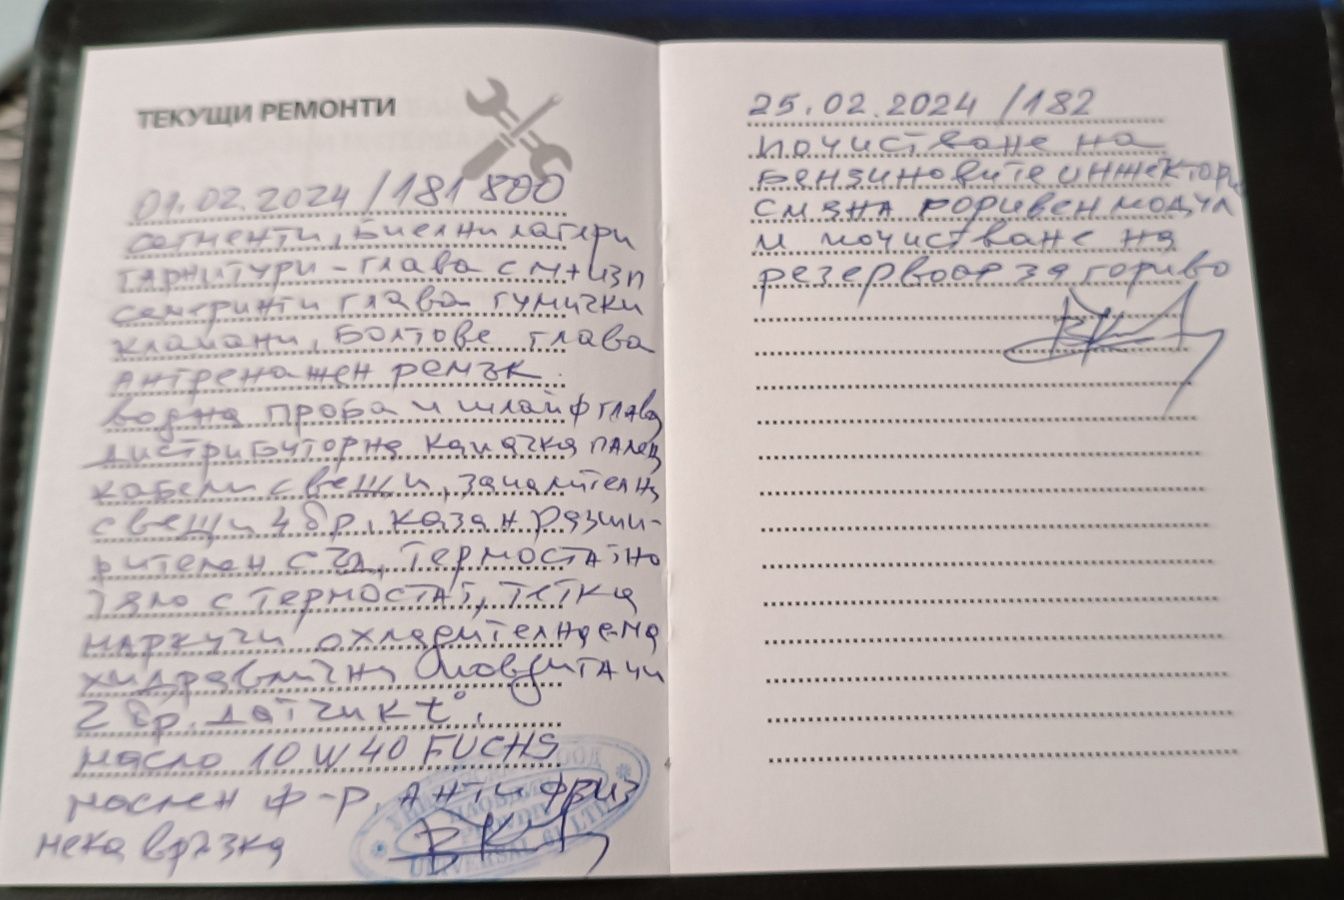 ТЕКУЩИ РЕМОНТИ
01.02.2024/181 800
сегменти, Биелни лагери
гарнитури - глава см + изп
семеринги глава гумички
клапани, Болтове глава
Ангренажен ремък.
водна проба и шлайф глава
дистрибуторна капачка палец
кабели свещи, запалителни
свещи 4 бр. казан разши-
рителен съд, термостатно
тяло с термостат, тетка
маркучи охладителна с-ма
хидравлични повдигачи
2 бр. датчик t°.
масло 10 W 40 FUCHS
маслен ф-р, Антифриз
мека връзка
UNIVERSAL
25.02.2024 /182
почистване на
бензиновите инжектори
смяна горивен модул
и почистване на
резервоар за гориво